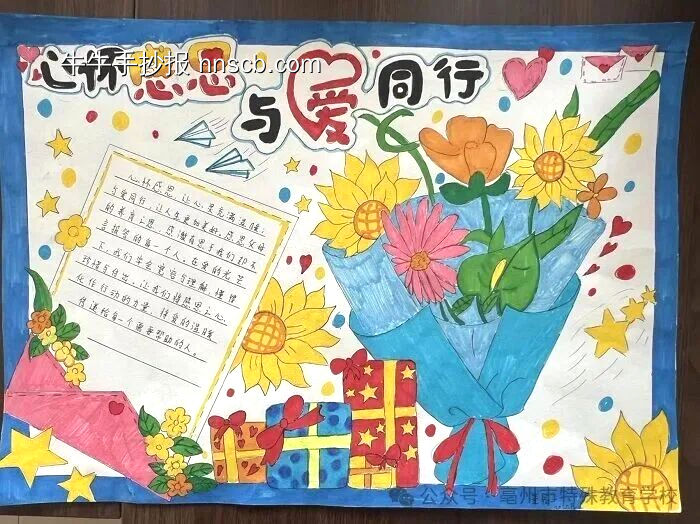 心怀感恩
与爱同行
牛牛手抄报 hnscb.com
心怀感恩,让心灵充满温暖;
与爱同行,让人生更加美好。感恩父母
的养育之恩,感激有恩于我们却不
言报答的每一个人。在爱的光芒
下,我们学会宽容与理解,懂得
珍惜与付出。让我们将感恩之心
化作行动的力量,将爱的温暖
传递给每一个需要帮助的人。
公众号·亳州市特殊教育学校